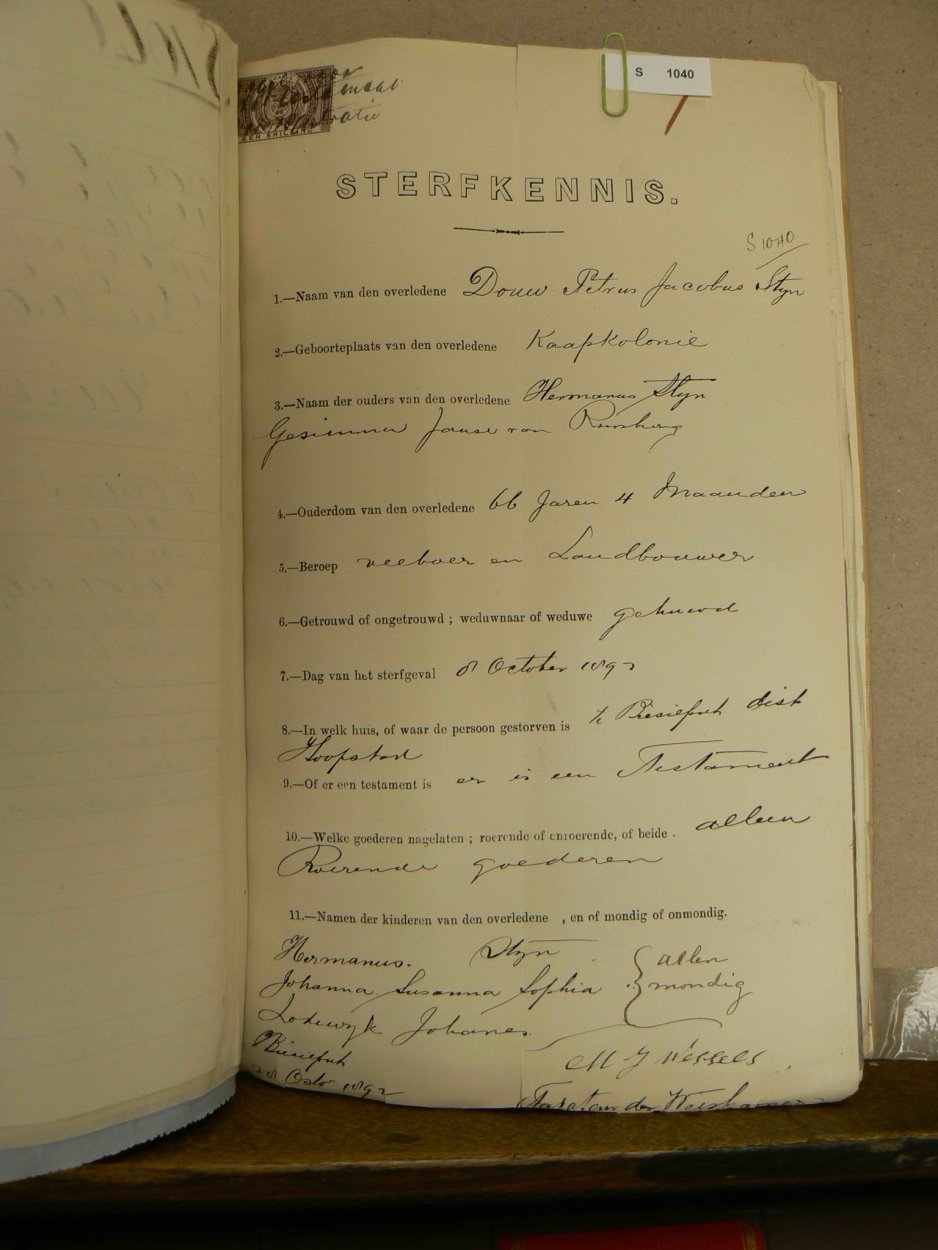 S 1040
EEN SHILLING
STERFKENNIS.
S 1040
1.—Naam van den overledene Douw Petrus Jacobus Styn
2.—Geboorteplaats van den overledene Kaapkolonie
3.—Naam der ouders van den overledene Hermanus Styn
Gesiena Janse van Rensberg
4.—Ouderdom van den overledene 66 Jaren 4 Maanden
5.—Beroep veeboer en Landbouwer
6.—Getrouwd of ongetrouwd ; weduwnaar of weduwe gehuwd
7.—Dag van het sterfgeval 8 October 1892
8.—In welk huis, of waar de persoon gestorven is dist
Hoopstad
9.—Of er een testament is er is een Testament
10.—Welke goederen nagelaten ; roerende of onroerende, of beide . alleen
Roerende goederen
11.—Namen der kinderen van den overledene , en of mondig of onmondig.
Hermanus. Styn allen
Johanna Susanna Sophia mondig
Lodewyk Johanes
M J Wessels
8 Octo 1892
der Weeskamer